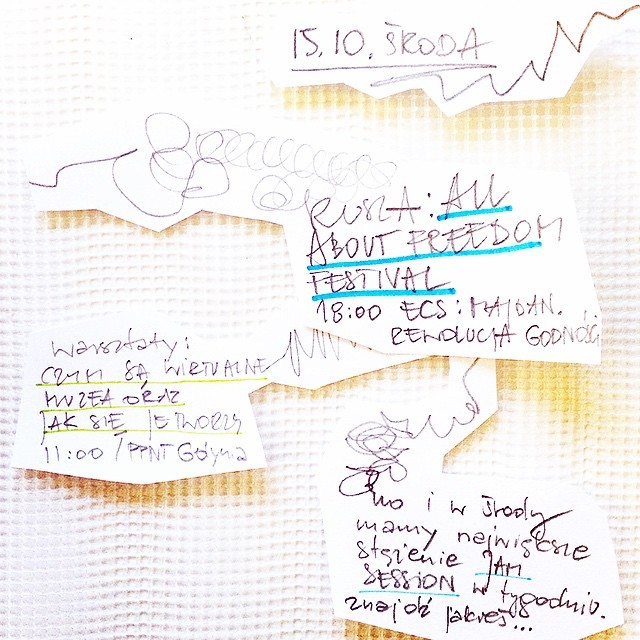 15.10. ŚRODA
RUSZA: ALL
ABOUT FREEDOM
FESTIVAL
18:00 ECS: MAJDAN.
REWOLUCJA GODNOŚCI
Warsztaty:
CZYM SĄ WIRTUALNE
MUZEA ORAZ
JAK SIĘ JE TWORZY
11:00 / PPNT Gdynia
no i w środy
mamy największe
stężenie JAM
SESSION w tygodniu.
znajdź jakieś...